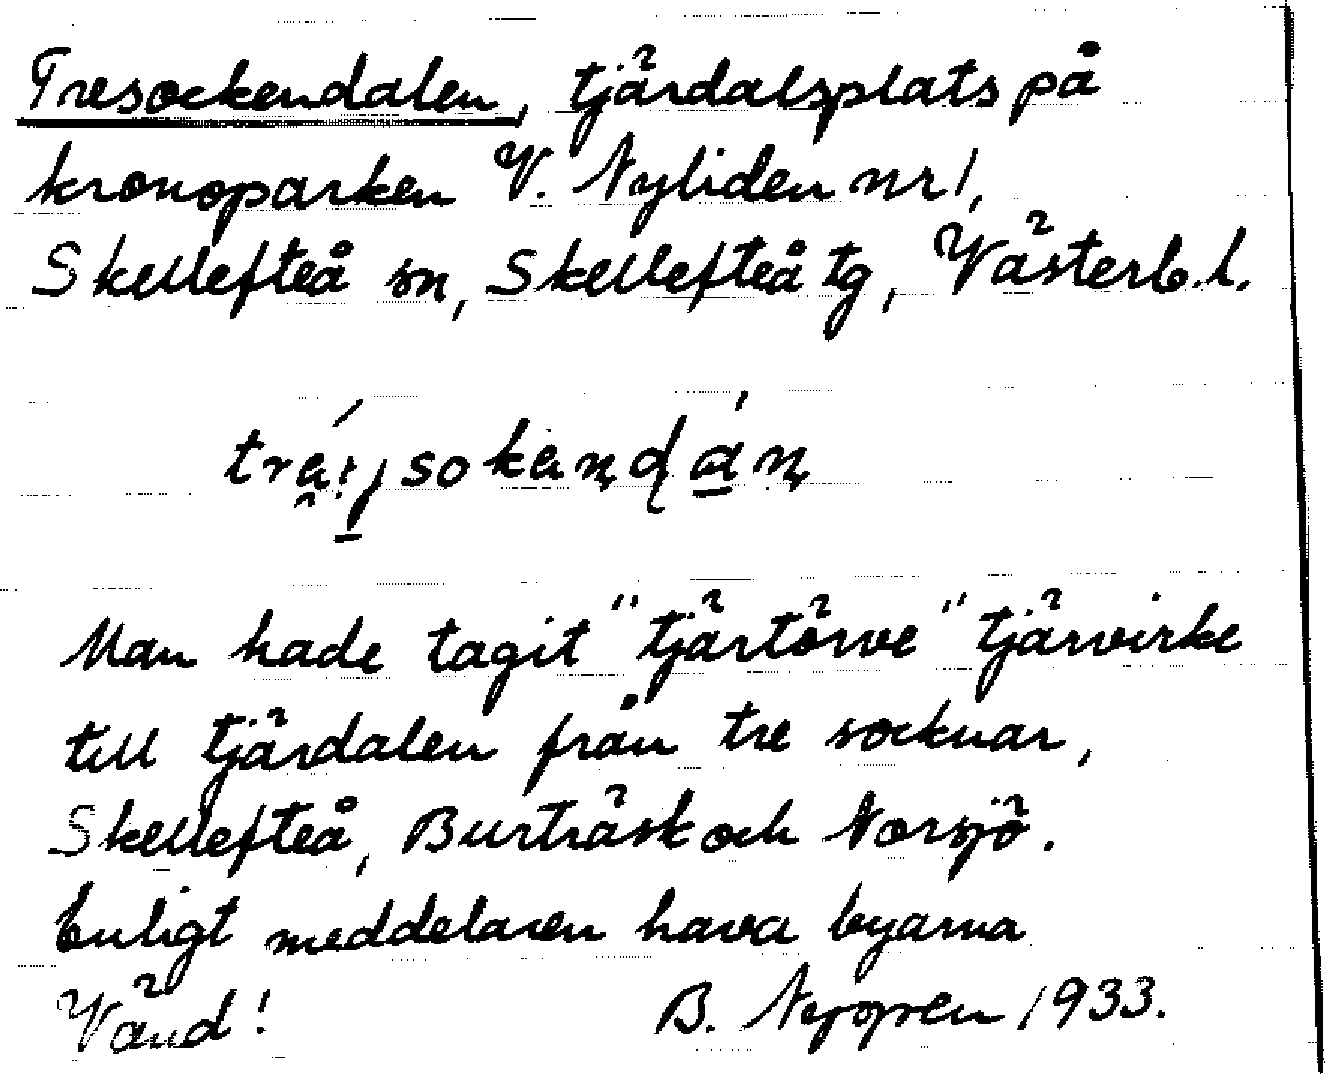 Tresockendalen, tjärdalsplats på
kronoparken V. Nyliden nr 1,
Skellefteå sn, Skellefteå tg, Västerb. l.
Man hade tagit "tjärtörve" tjärvirke
till tjärdalen från tre socknar,
Skellefteå, Burträsk och Norsjö.
Enligt meddelaren hava byarna
Vänd! B. Nygren 1933.